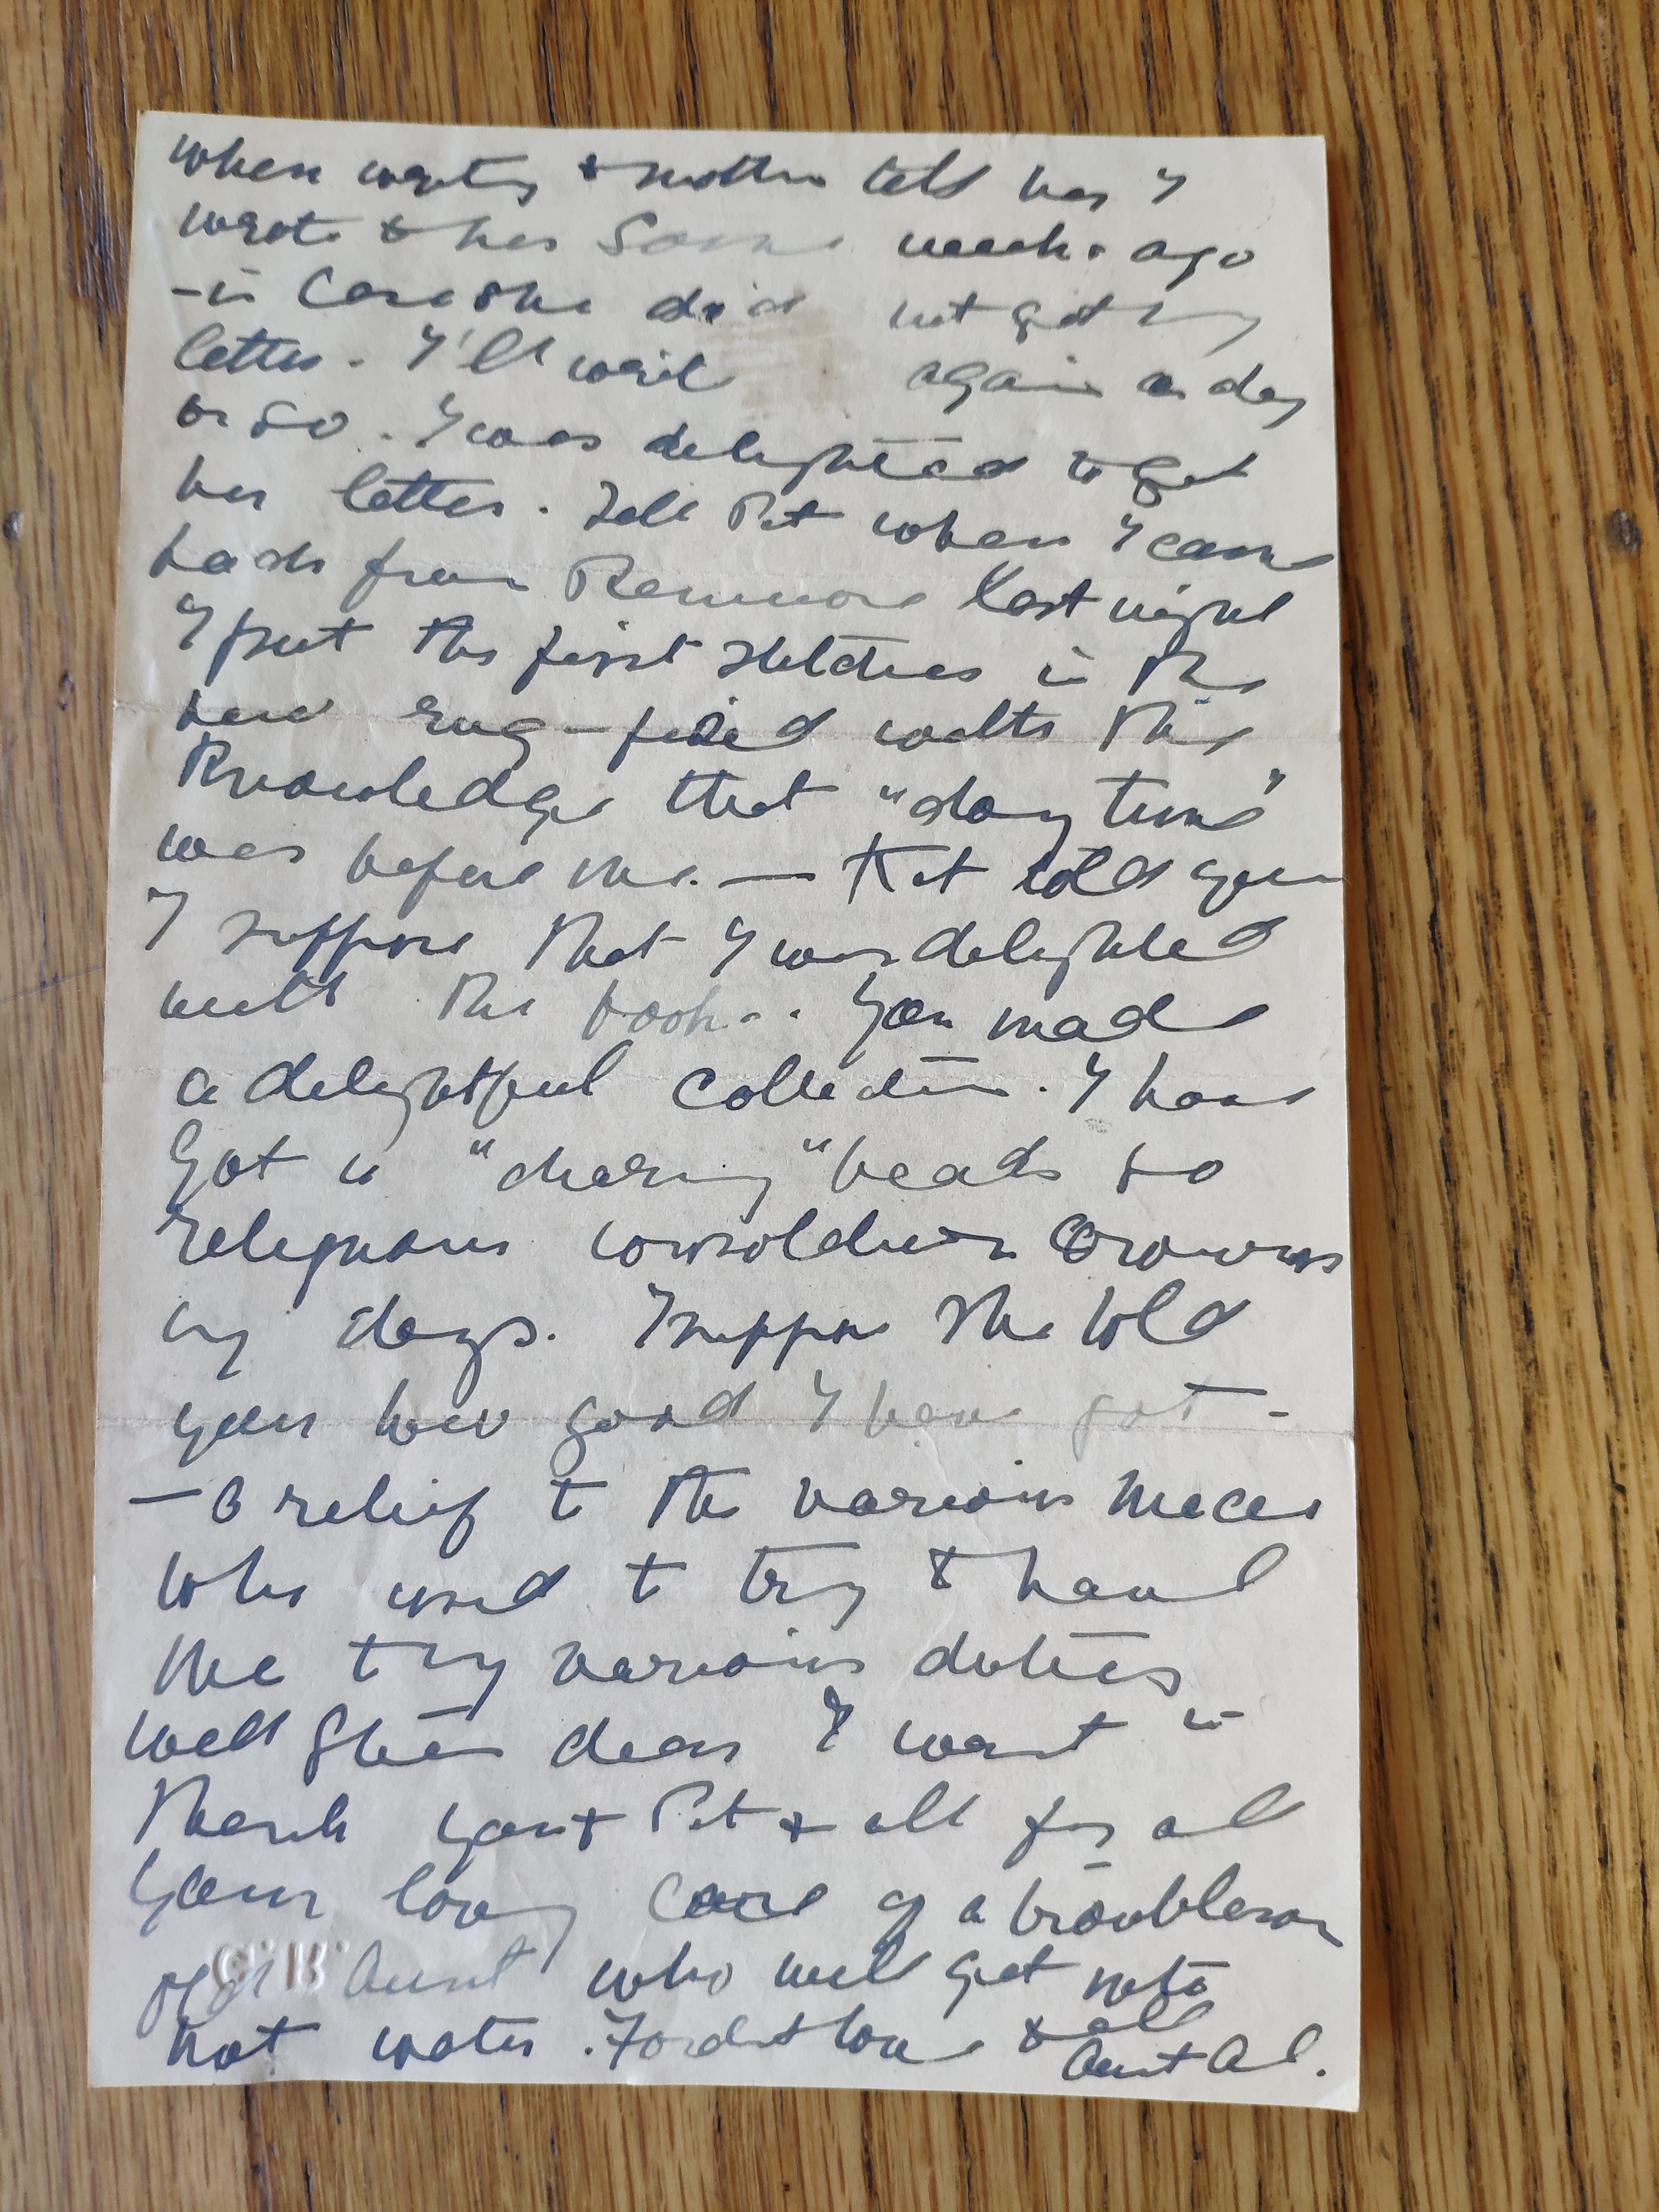 when writing to mother tell her I
wrote to her some weeks ago
- in case she did not get my
letter. I'll write again a day
or so. I was delighted to get
her letter. Tell Pat when I came
back from last night
I put the first stitches in the
new rug - fired with the
knowledge that "day time"
was before me. — Kat told you
I suppose that I was delighted
with the books. You made
a delightful collection. I have
got a "charming" beads so
religious consolation crowns
my days. I suppose she told
you how good I have got -
- a relief to the various nieces
who used to try to haul
me to my various duties
Well dear I want to
thank you & Pat & all for all
your loving care of a troublesome
old Aunt who will get into
hot water. Fondest love to all
Aunt Al.